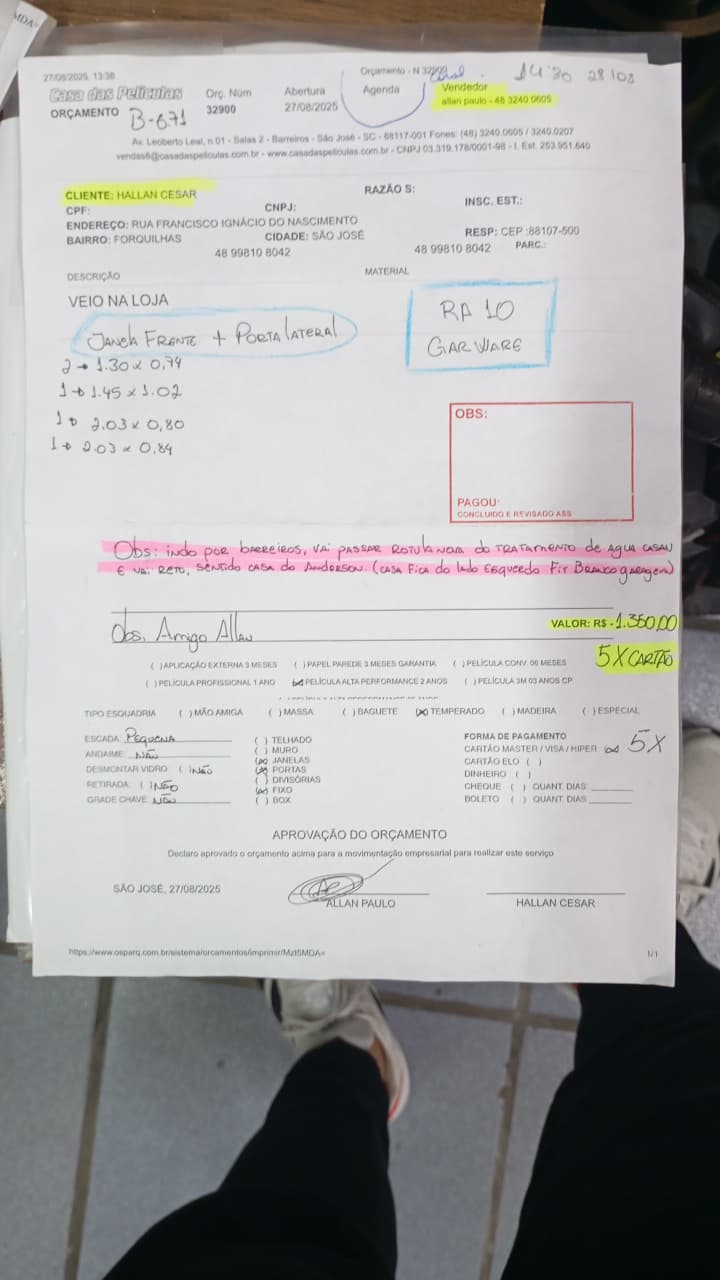 MDA=
27/08/2025, 13:38 Orçamento - N 32900 14:30 28/08
Casa das Películas Orç. Núm Abertura Agenda Vendedor
ORÇAMENTO B-671 32900 27/08/2025 allan paulo - 48 3240 0605
Av. Leoberto Leal, n 01 - Salas 2 - Barreiros - São José - SC - 88117-001 Fones: (48) 3240.0605 / 3240.0207
vendas6@casadaspeliculas.com.br - www.casadaspeliculas.com.br - CNPJ 03.319.178/0001-98 - I. Est. 253.951.640
CLIENTE: HALLAN CESAR RAZÃO S:
CPF: CNPJ: INSC. EST.:
ENDEREÇO: RUA FRANCISCO IGNÁCIO DO NASCIMENTO
BAIRRO: FORQUILHAS CIDADE: SÃO JOSÉ RESP: CEP :88107-500
48 99810 8042 48 99810 8042 PARC.:
DESCRIÇÃO MATERIAL
VEIO NA LOJA RA 10
JANELA FRENTE + PORTA LATERAL GARWARE
2 → 1.30 x 0,74
1 → 1.45 x 1.02
1 → 2.03 x 0,80
1 → 2.03 x 0,84
OBS:
PAGOU:
CONCLUIDO E REVISADO ASS
Obs: indo por barreiros, vai passar rotula nova do tratamento de agua casan
e vai reto, sentido casa do Anderson. (casa fica do lado esquerdo Branco garagem)
Obs. Amigo Allan VALOR: R$ - 1.350,00
5X CARTÃO
( ) APLICAÇÃO EXTERNA 3 MESES ( ) PAPEL PAREDE 3 MESES GARANTIA ( ) PELÍCULA CONV. 06 MESES
( ) PELÍCULA PROFISSIONAL 1 ANO (x) PELÍCULA ALTA PERFORMANCE 2 ANOS ( ) PELÍCULA 3M 03 ANOS CP
TIPO ESQUADRIA ( ) MÃO AMIGA ( ) MASSA ( ) BAGUETE (x) TEMPERADO ( ) MADEIRA ( ) ESPECIAL
ESCADA: PEQUENA ( ) TELHADO FORMA DE PAGAMENTO
ANDAIME: NÃO ( ) MURO CARTÃO MASTER / VISA / HIPER (x) 5X
DESMONTAR VIDRO ( ) NÃO (x) JANELAS CARTÃO ELO ( )
RETIRADA: ( ) NÃO (x) PORTAS DINHEIRO ( )
GRADE CHAVE: NÃO ( ) DIVISÓRIAS CHEQUE ( ) QUANT. DIAS
(x) FIXO BOLETO ( ) QUANT. DIAS
( ) BOX
APROVAÇÃO DO ORÇAMENTO
Declaro aprovado o orçamento acima para a movimentação empresarial para realizar este serviço
SÃO JOSÉ, 27/08/2025
ALLAN PAULO HALLAN CESAR
https://www.osparq.com.br/sistema/orcamentos/imprimir/MzI5MDA= 1/1